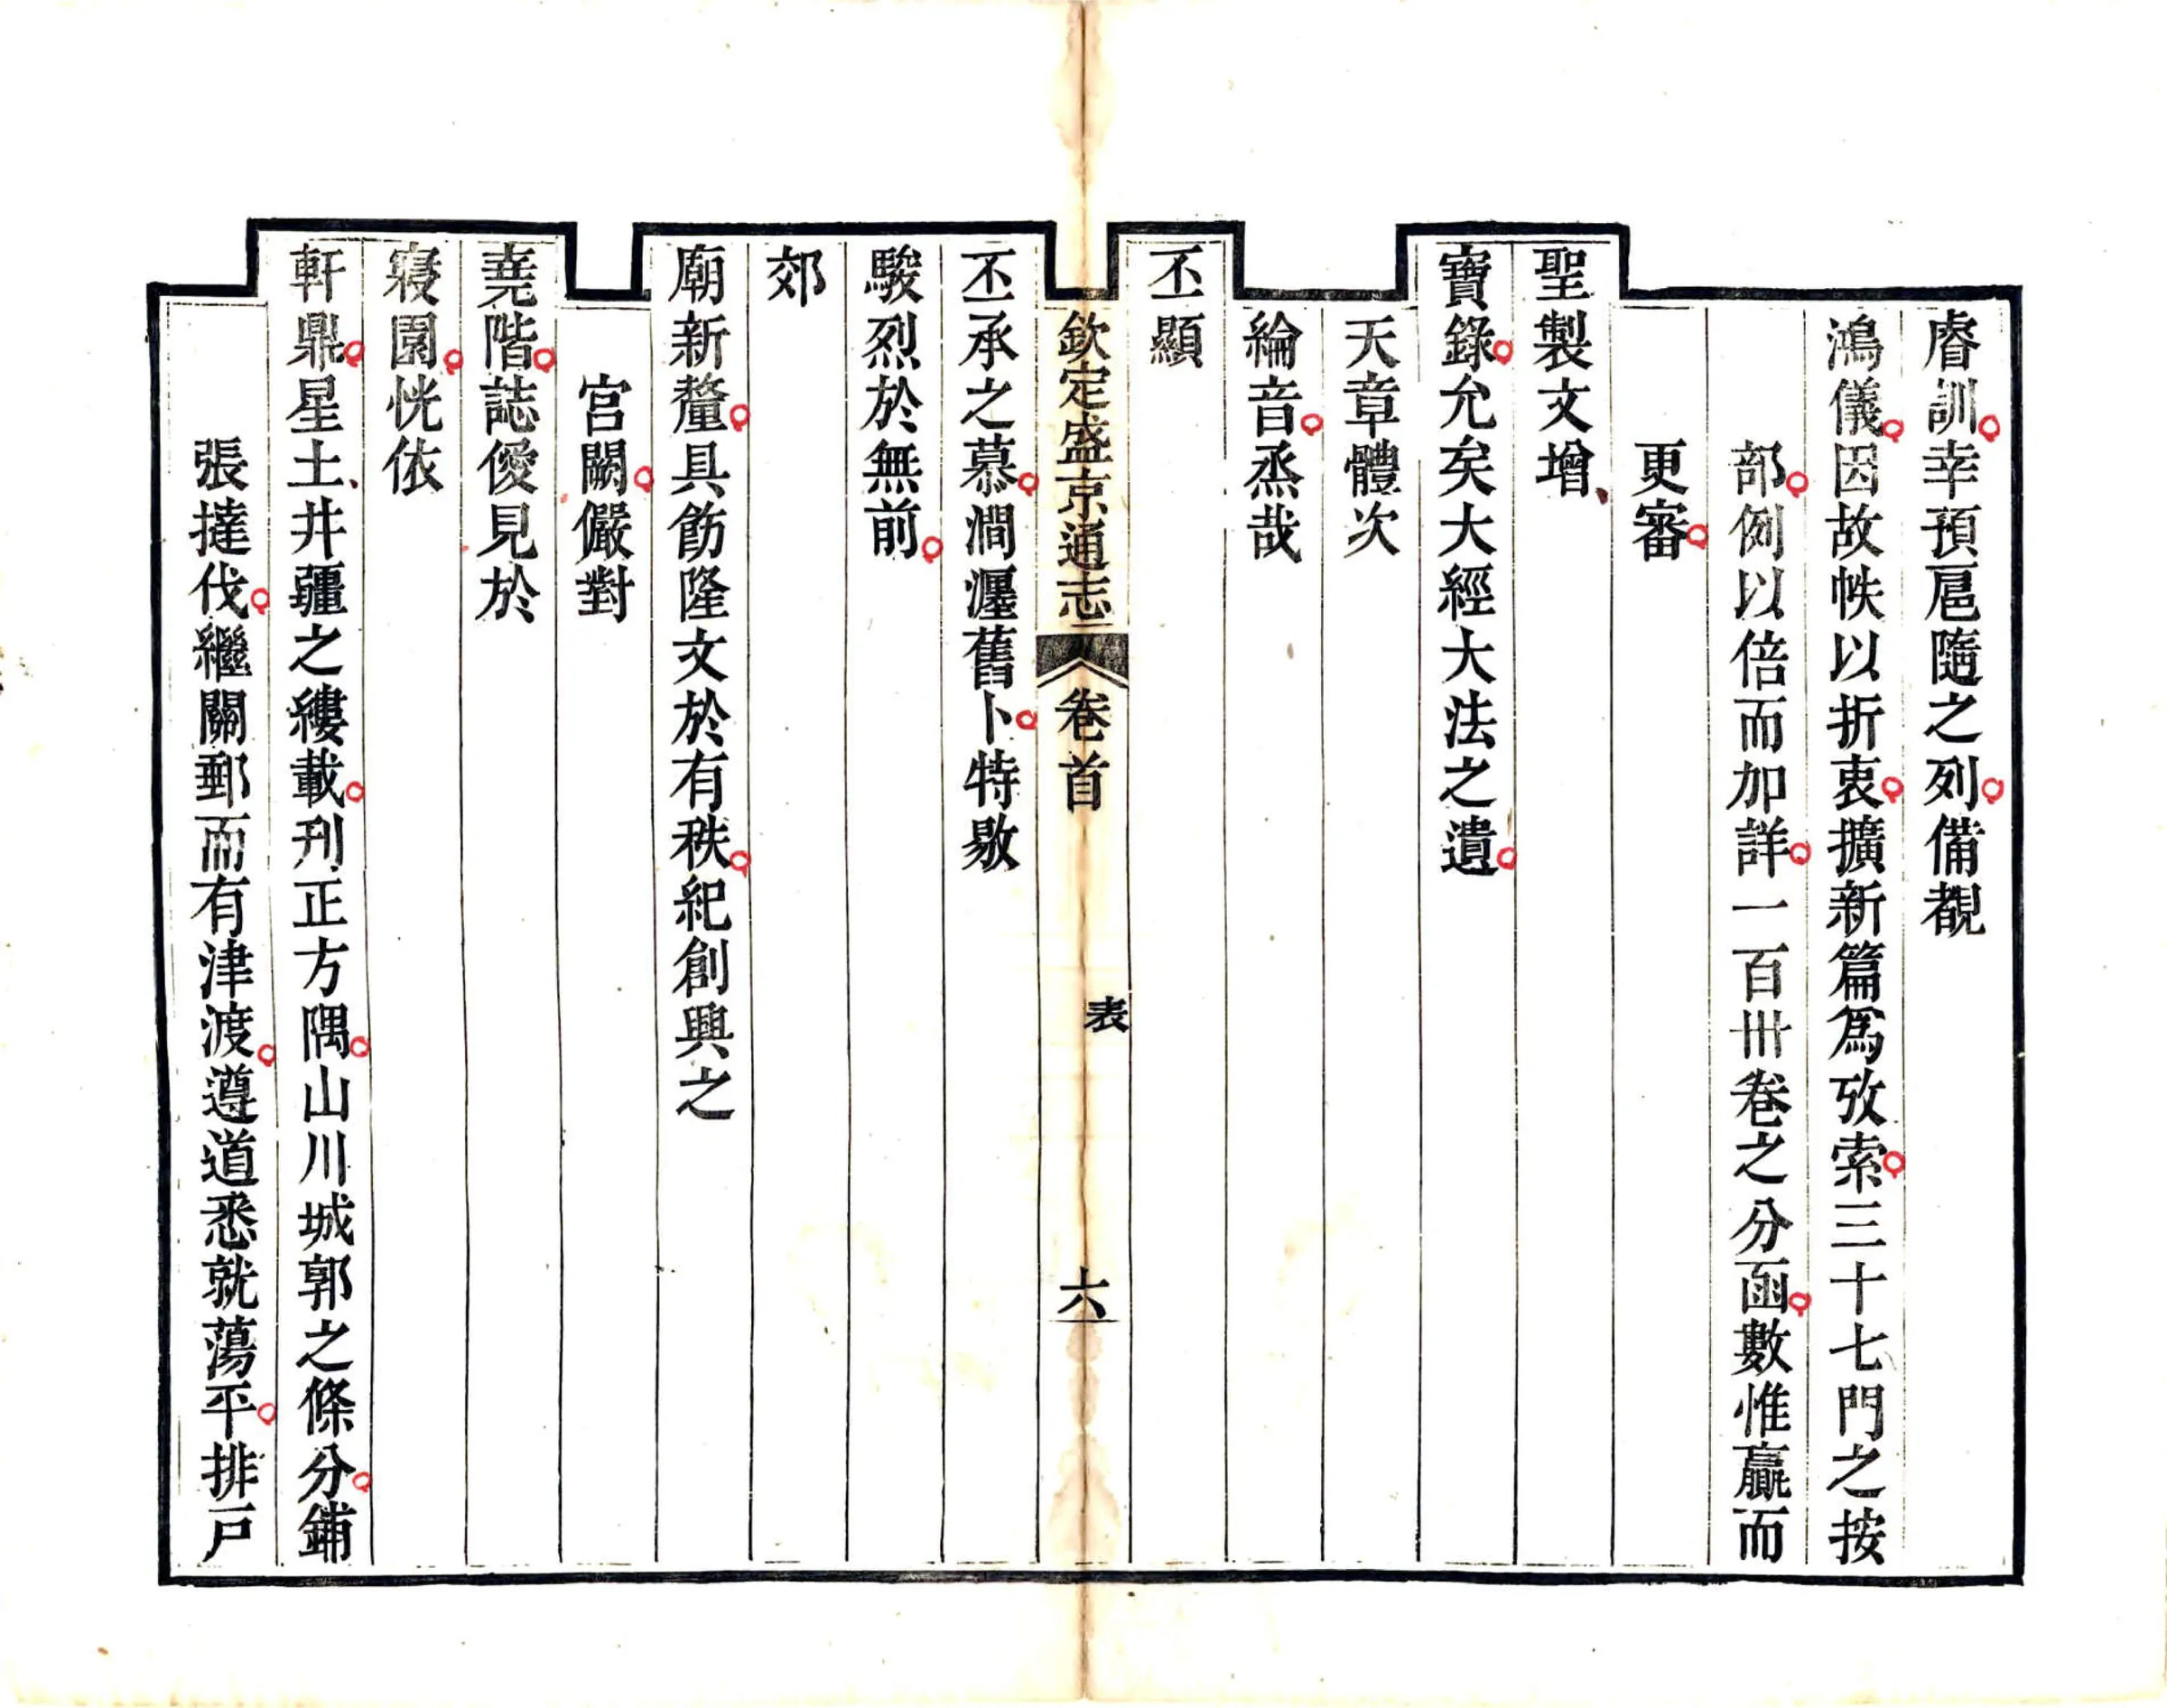 睿訓幸預扈隨之列備覩
鴻儀因故帙以折衷擴新篇爲攷索三十七門之按
部例以倍而加詳一百卌卷之分函數惟贏而
更審
聖製文增
寶錄允矣大經大法之遺
天章體次
綸音烝哉
丕顯
欽定盛京通志 卷首 表 六
丕承之慕澗瀍舊卜特敭
駿烈於無前
郊
廟新釐具飭隆文於有秩紀創興之
宮闕儼對
堯階誌優見於
寢園恍依
軒鼎星土井疆之縷載刋正方隅山川城郭之條分鋪
張撻伐繼關郵而有津渡遵道悉就蕩平排戸